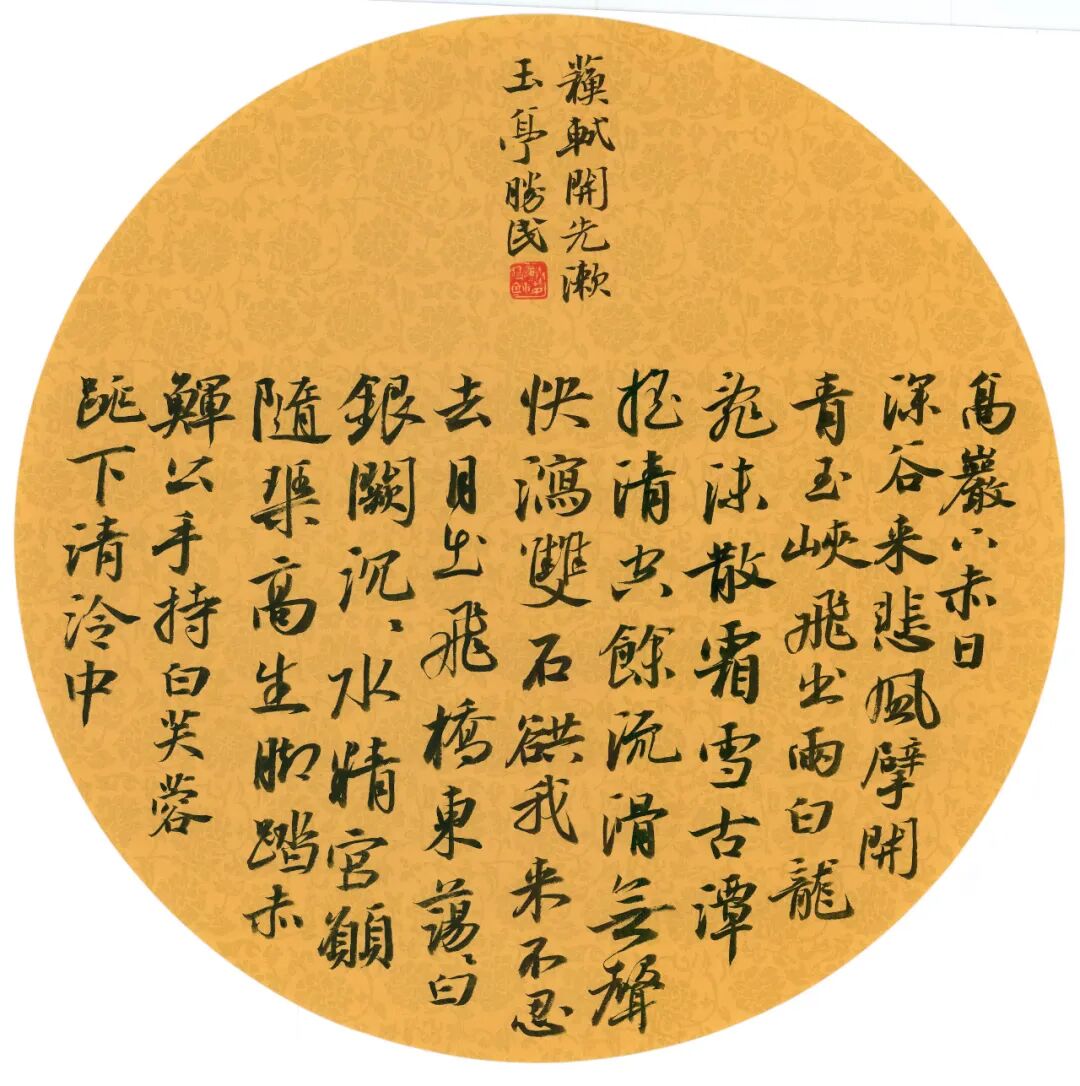 高巖下赤日
深谷来悲風擘開
青玉峽飛出兩白龍
乱沫散霜雪古潭
摇清空餘流滑無聲
快瀉雙石谼我来不忍
去月出飛橋東蕩、白
銀闕沉、水精宫願
隨琴高生脚踏赤
鯶公手持白芙蓉
跳下清泠中
蘇軾開先漱
玉亭勝民